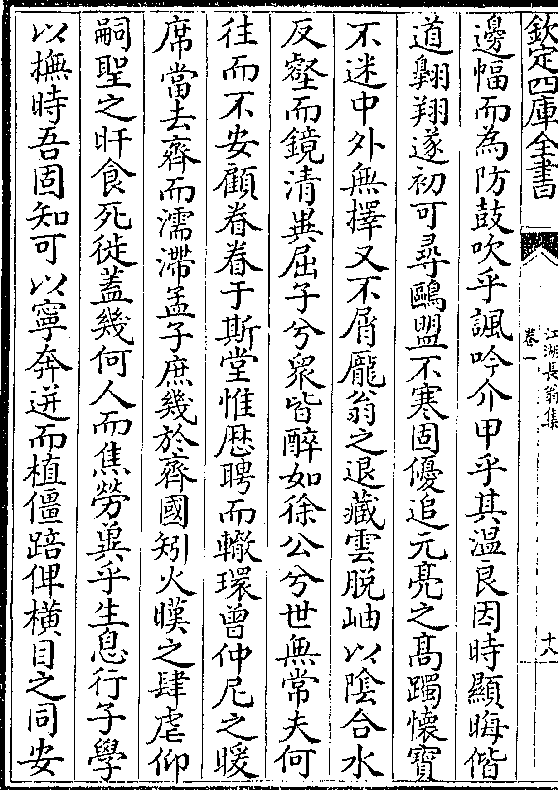 欽定四庫全書
江湖長翁集
卷一
十八
邊幅而為防鼓吹乎諷吟介甲乎其溫良因時顯晦偕
道翺翔遂初可尋鷗盟不寒固優追元亮之髙躅懷寶
不迷中外無擇又不屑龎翁之退藏雲脱岫以陰合水
反壑而鏡清異屈子兮衆皆醉如徐公兮世無常夫何
往而不安顧眷眷于斯堂惟歴聘而轍環曾仲尼之暖
席當去齊而濡滯孟子庶幾於齊國矧火暵之肆虐仰
嗣聖之旰食死徙蓋幾何人而焦勞冀乎生息行子學
以撫時吾固知可以寧奔迸而植僵踣俾横目之同安